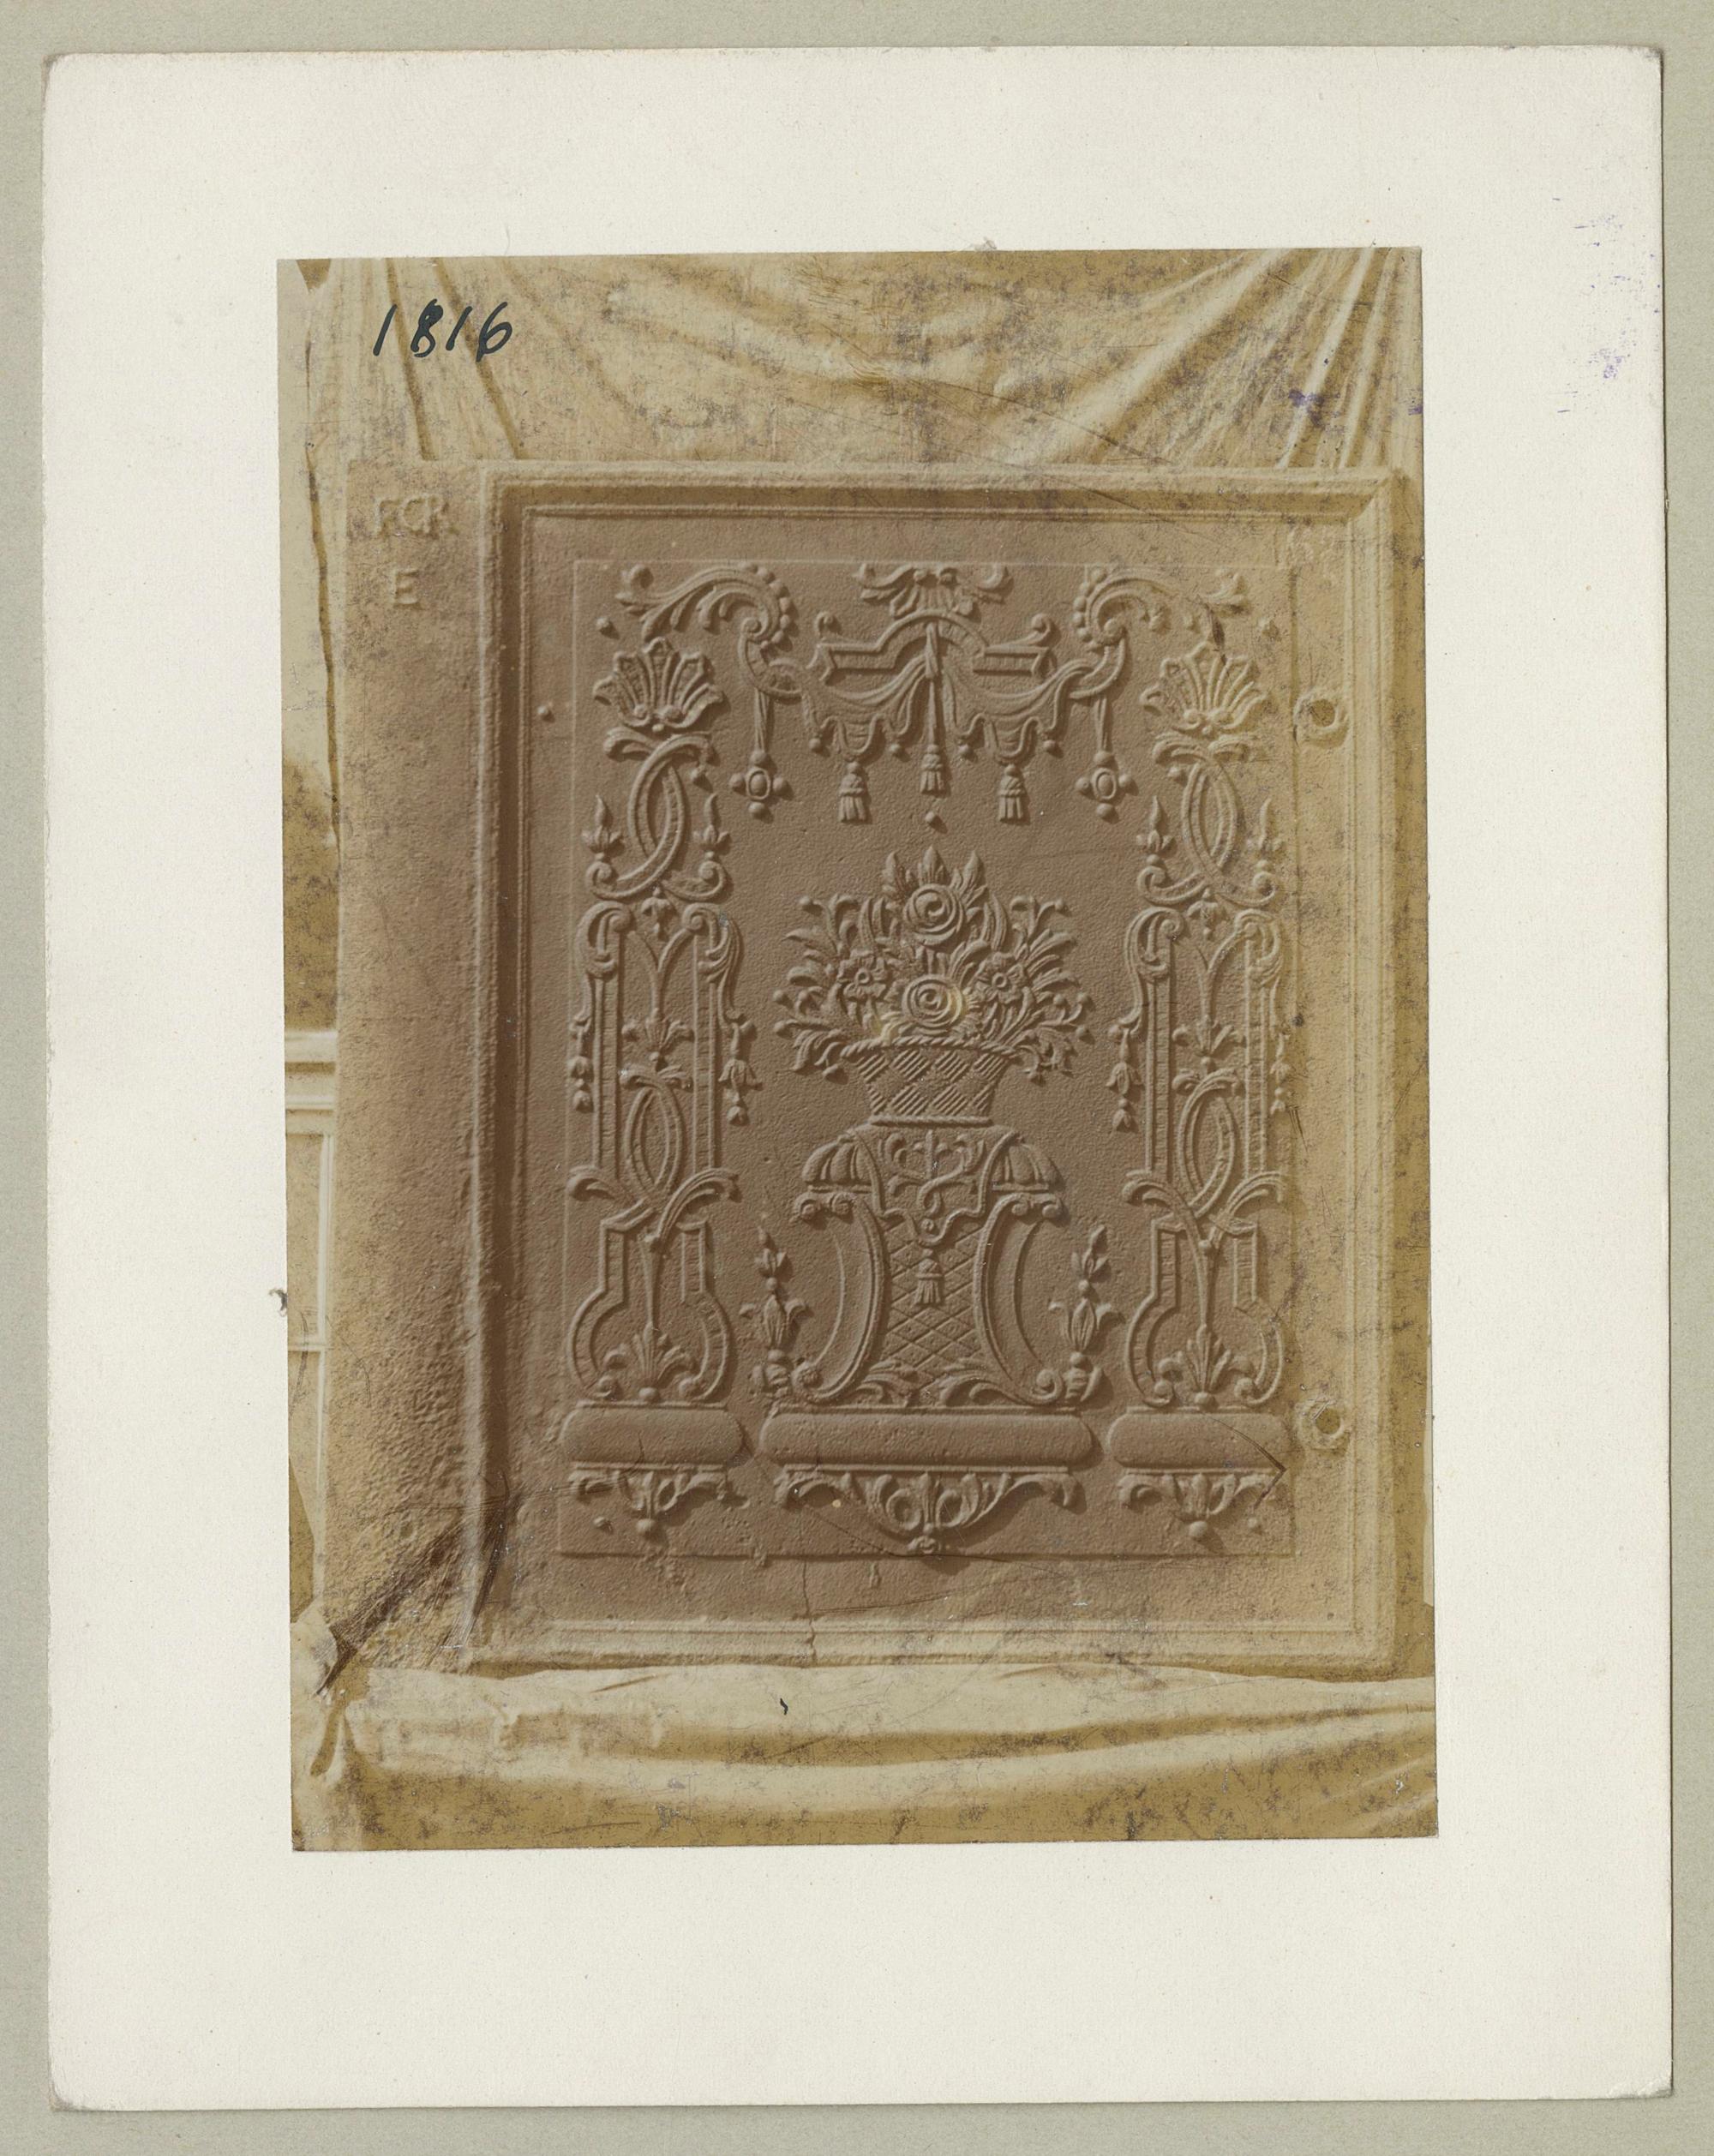 1816
RCR
E